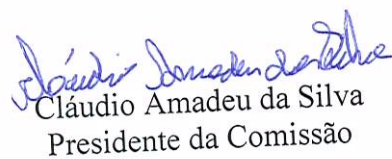 Cláudio Amadeu da Silva
Cláudio Amadeu da Silva
Presidente da Comissão